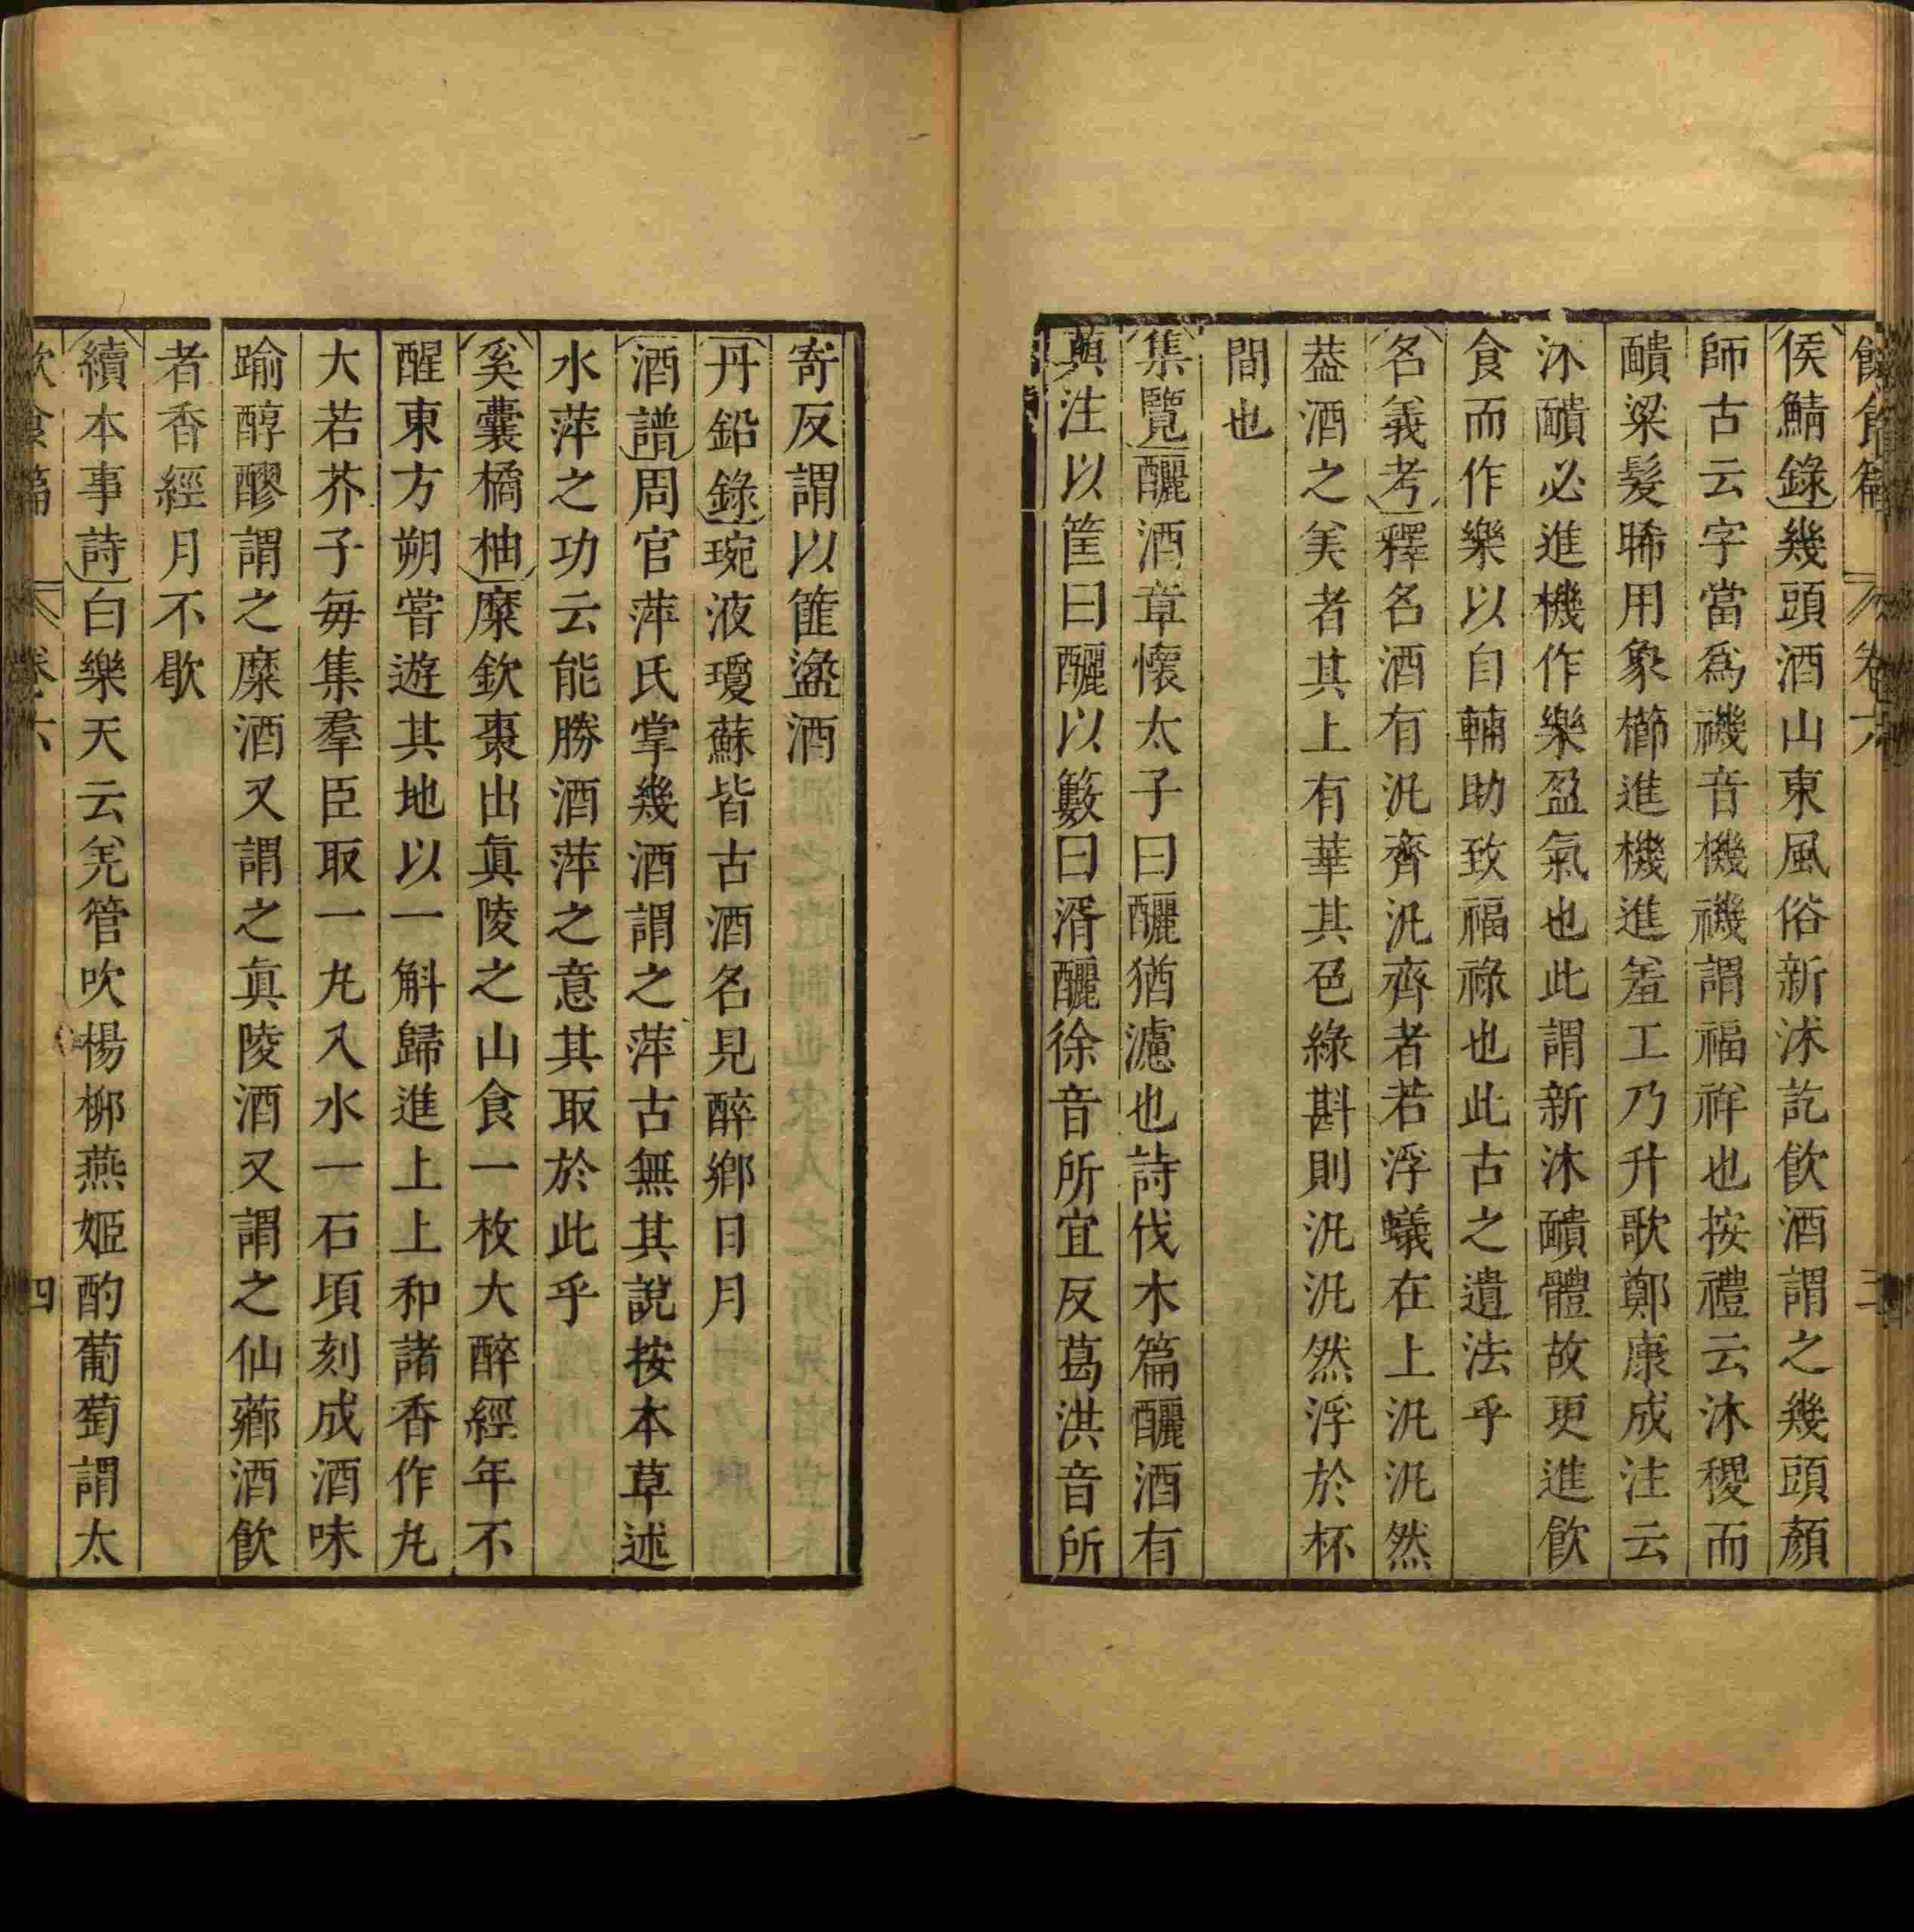 飲食篇 卷六 三
侯鯖錄幾頭酒山東風俗新沐訖飲酒謂之幾頭顏
師古云字當為禨音機禨謂福祥也按禮云沐稷而
靧粱髮晞用象櫛進禨進羞工乃升歌鄭康成注云
沐靧必進禨作樂盈氣也此謂新沐靧體故更進飲
食而作樂以自輔助致福祿也此古之遺法乎
名義考釋名酒有汎齊汎齊者若浮蟻在上汎汎然
葢酒之美者其上有華其色綠斟則汎汎然浮於杯
間也
集覽釃酒章懷太子曰釃猶濾也詩伐木篇釃酒有
藇注以筐曰釃以籔曰湑釃徐音所宜反葛洪音所
寄反謂以篚盪酒
丹鉛錄琬液瓊蘇皆古酒名見醉鄉日月
酒譜周官萍氏掌幾酒謂之萍古無其說按本草述
水萍之功云能勝酒萍之意其取於此乎
奚囊橘柚糜欽棗出眞陵之山食一枚大醉經年不
醒東方朔嘗遊其地以一斛歸進上上和諸香作丸
大若芥子每集羣臣取一丸入水一石頃刻成酒味
踰醇醪謂之糜酒又謂之眞陵酒又謂之仙薌酒飲
者香經月不歇
續本事詩白樂天云羌管吹楊柳燕姬酌葡萄謂太
飲食篇 卷六 四